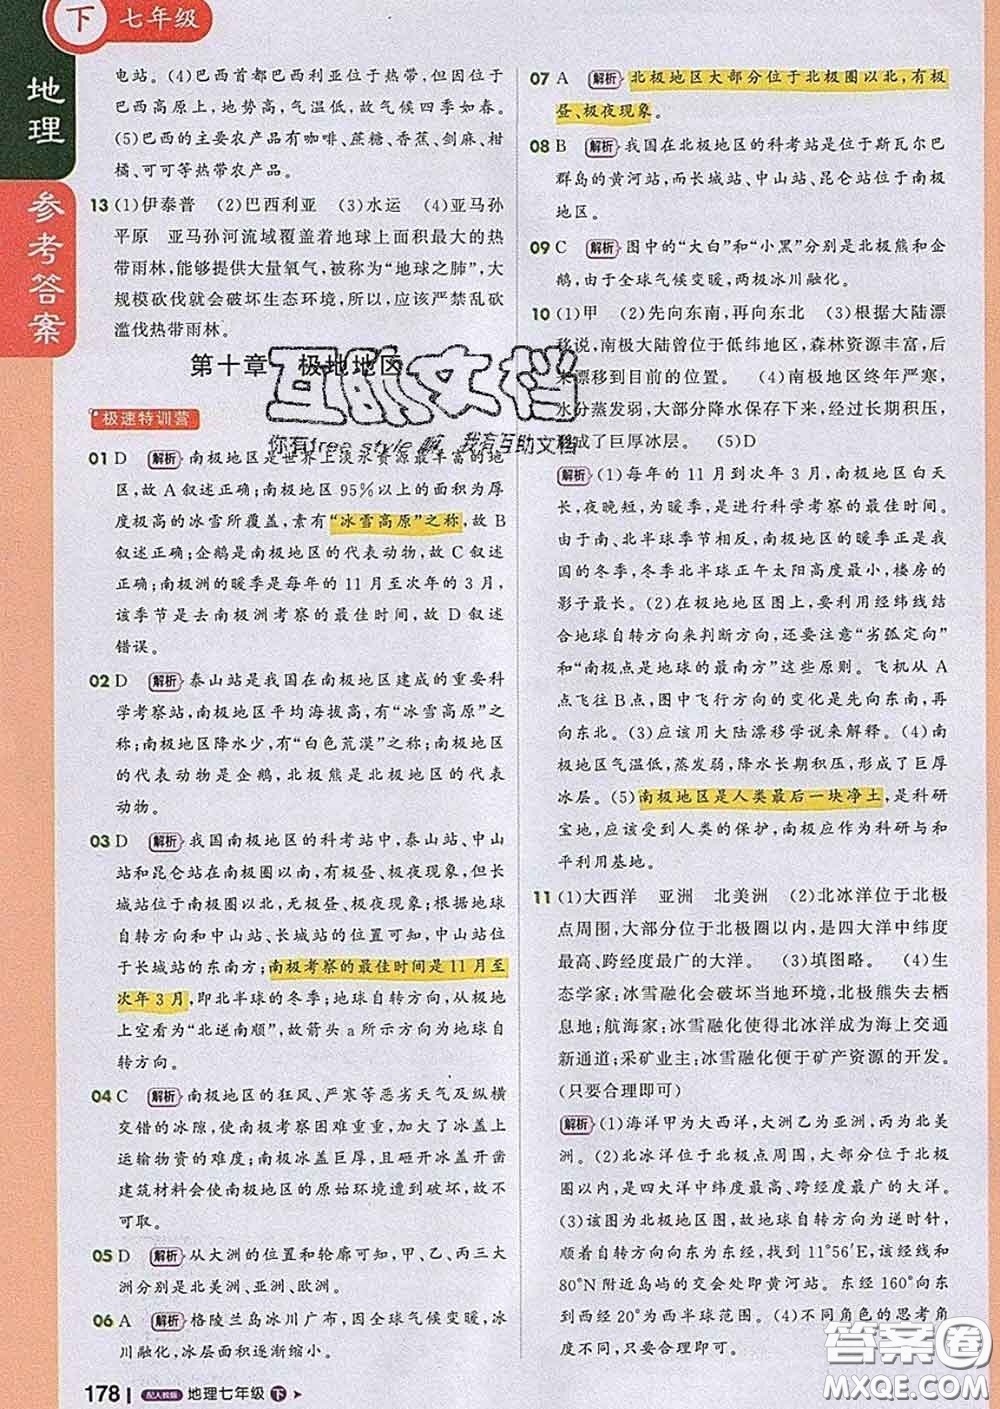 下 七年级
地理
参考答案
电站。(4)巴西首都巴西利亚位于热带,但因位于
巴西高原上,地势高,气温低,故气候四季如春。
(5)巴西的主要农产品有咖啡、蔗糖、香蕉、剑麻、柑
橘、可可等热带农产品。
13 (1)伊泰普 (2)巴西利亚 (3)水运 (4)亚马孙
平原 亚马孙河流域覆盖着地球上面积最大的热
带雨林,能够提供大量氧气,被称为“地球之肺”,大
规模砍伐就会破坏生态环境,所以,应该严禁乱砍
滥伐热带雨林。
第十章 极地地区
极速特训营
01 D 解析 南极地区是世界上淡水资源最丰富的地
区,故A叙述正确;南极地区95%以上的面积为厚
度极高的冰雪所覆盖,素有“冰雪高原”之称,故B
叙述正确;企鹅是南极地区的代表动物,故C叙述
正确;南极洲的暖季是每年的11月至次年的3月,
该季节是去南极洲考察的最佳时间,故D叙述
错误。
02 D 解析 泰山站是我国在南极地区建成的重要科
学考察站,南极地区平均海拔高,有“冰雪高原”之
称;南极地区降水少,有“白色荒漠”之称;南极地区
的代表动物是企鹅,北极熊是北极地区的代表
动物。
03 D 解析 我国南极地区的科考站中,泰山站、中山
站和昆仑站在南极圈以内,有极昼、极夜现象,但长
城站位于南极圈以北,无极昼、极夜现象;根据地球
自转方向和中山站、长城站的位置可知,中山站位
于长城站的东南方;南极考察的最佳时间是11月至
次年3月,即北半球的冬季;地球自转方向,从极地
上空看为“北逆南顺”,故箭头a所示方向为地球自
转方向。
04 C 解析 南极地区的狂风、严寒等恶劣天气及纵横
交错的冰隙,使南极考察困难重重,加大了冰盖上
运输物资的难度;南极冰盖巨厚,且砸开冰盖开凿
建筑材料会使南极地区的原始环境遭到破坏,故不
可取。
05 D 解析 从大洲的位置和轮廓可知,甲、乙、丙三大
洲分别是北美洲、亚洲、欧洲。
06 A 解析 格陵兰岛冰川广布,因全球气候变暖,冰
川融化,冰层面积逐渐缩小。
178 配人教版 地理七年级 下
07 A 解析 北极地区大部分位于北极圈以北,有极
昼、极夜现象。
08 B 解析 我国在北极地区的科考站是位于斯瓦尔巴
群岛的黄河站,而长城站、中山站、昆仑站在南极
地区。
09 C 解析 图中的“大白”和“小黑”分别是北极熊和企
鹅,由于全球气候变暖,两极冰川融化。
10 (1)甲 (2)先向东南,再向东北 (3)根据大陆漂
移说,南极大陆曾位于低纬地区,森林资源丰富,后
来漂移到目前的位置。 (4)南极地区终年严寒,
水分蒸发弱,大部分降水保存下来,经过长期积压,
形成了巨厚冰层。 (5)D
解析 (1)每年的11月到次年3月,南极地区白天
长,夜晚短,为暖季,是进行科学考察的最佳时间。
由于南、北半球季节相反,南极地区的暖季正是我
国的冬季,冬季北半球正午太阳高度最小,楼房的
影子最长。(2)在极地地区图上,要利用经纬线结
合地球自转方向来判断方向,还要注意“劣弧定向”
和“南极点是地球的最南方”这些原则。飞机从A
点飞往B点,图中飞行方向的变化是先向东南,再
向东北。(3)应该用大陆漂移学说来解释。(4)南
极地区气温低,蒸发弱,降水长期积压,形成了巨厚
冰层。(5)南极地区是人类最后一块净土,是科研
宝地,应该受到人类的保护,南极应作为科研与和
平利用基地。
11 (1)大西洋 亚洲 北美洲 (2)北冰洋位于北极
点周围,大部分位于北极圈以内,是四大洋中纬度
最高、跨经度最广的大洋。 (3)填图略。 (4)生
态学家:冰雪融化会破坏当地环境,北极熊失去栖
息地;航海家:冰雪融化使得北冰洋成为海上交通
新通道;采矿业主:冰雪融化便于矿产资源的开发。
(只要合理即可)
解析 (1)海洋甲为大西洋,大洲乙为亚洲,丙为北美
洲。(2)北冰洋位于北极点周围,大部分位于北极
圈以内,是四大洋中纬度最高、跨经度最广的大洋。
(3)该图为北极地区图,故地球自转方向为逆时针,
顺着自转方向向东为东经,找到11°56′E,该经线和
80°N附近岛屿的交会处即黄河站。东经160°向东
到西经20°为西半球范围。(4)不同角色的思考角
度不同,只要合理即可。
互助文档
你有free style啊,我有互助文档
答案圈
MXQE.COM